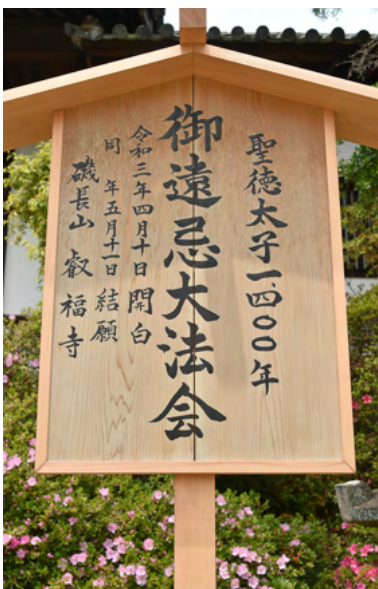 聖徳太子一、四〇〇年
御遠忌大法会
令和三年四月十日 開白
同 年五月十一日 結願
磯長山 叡福寺